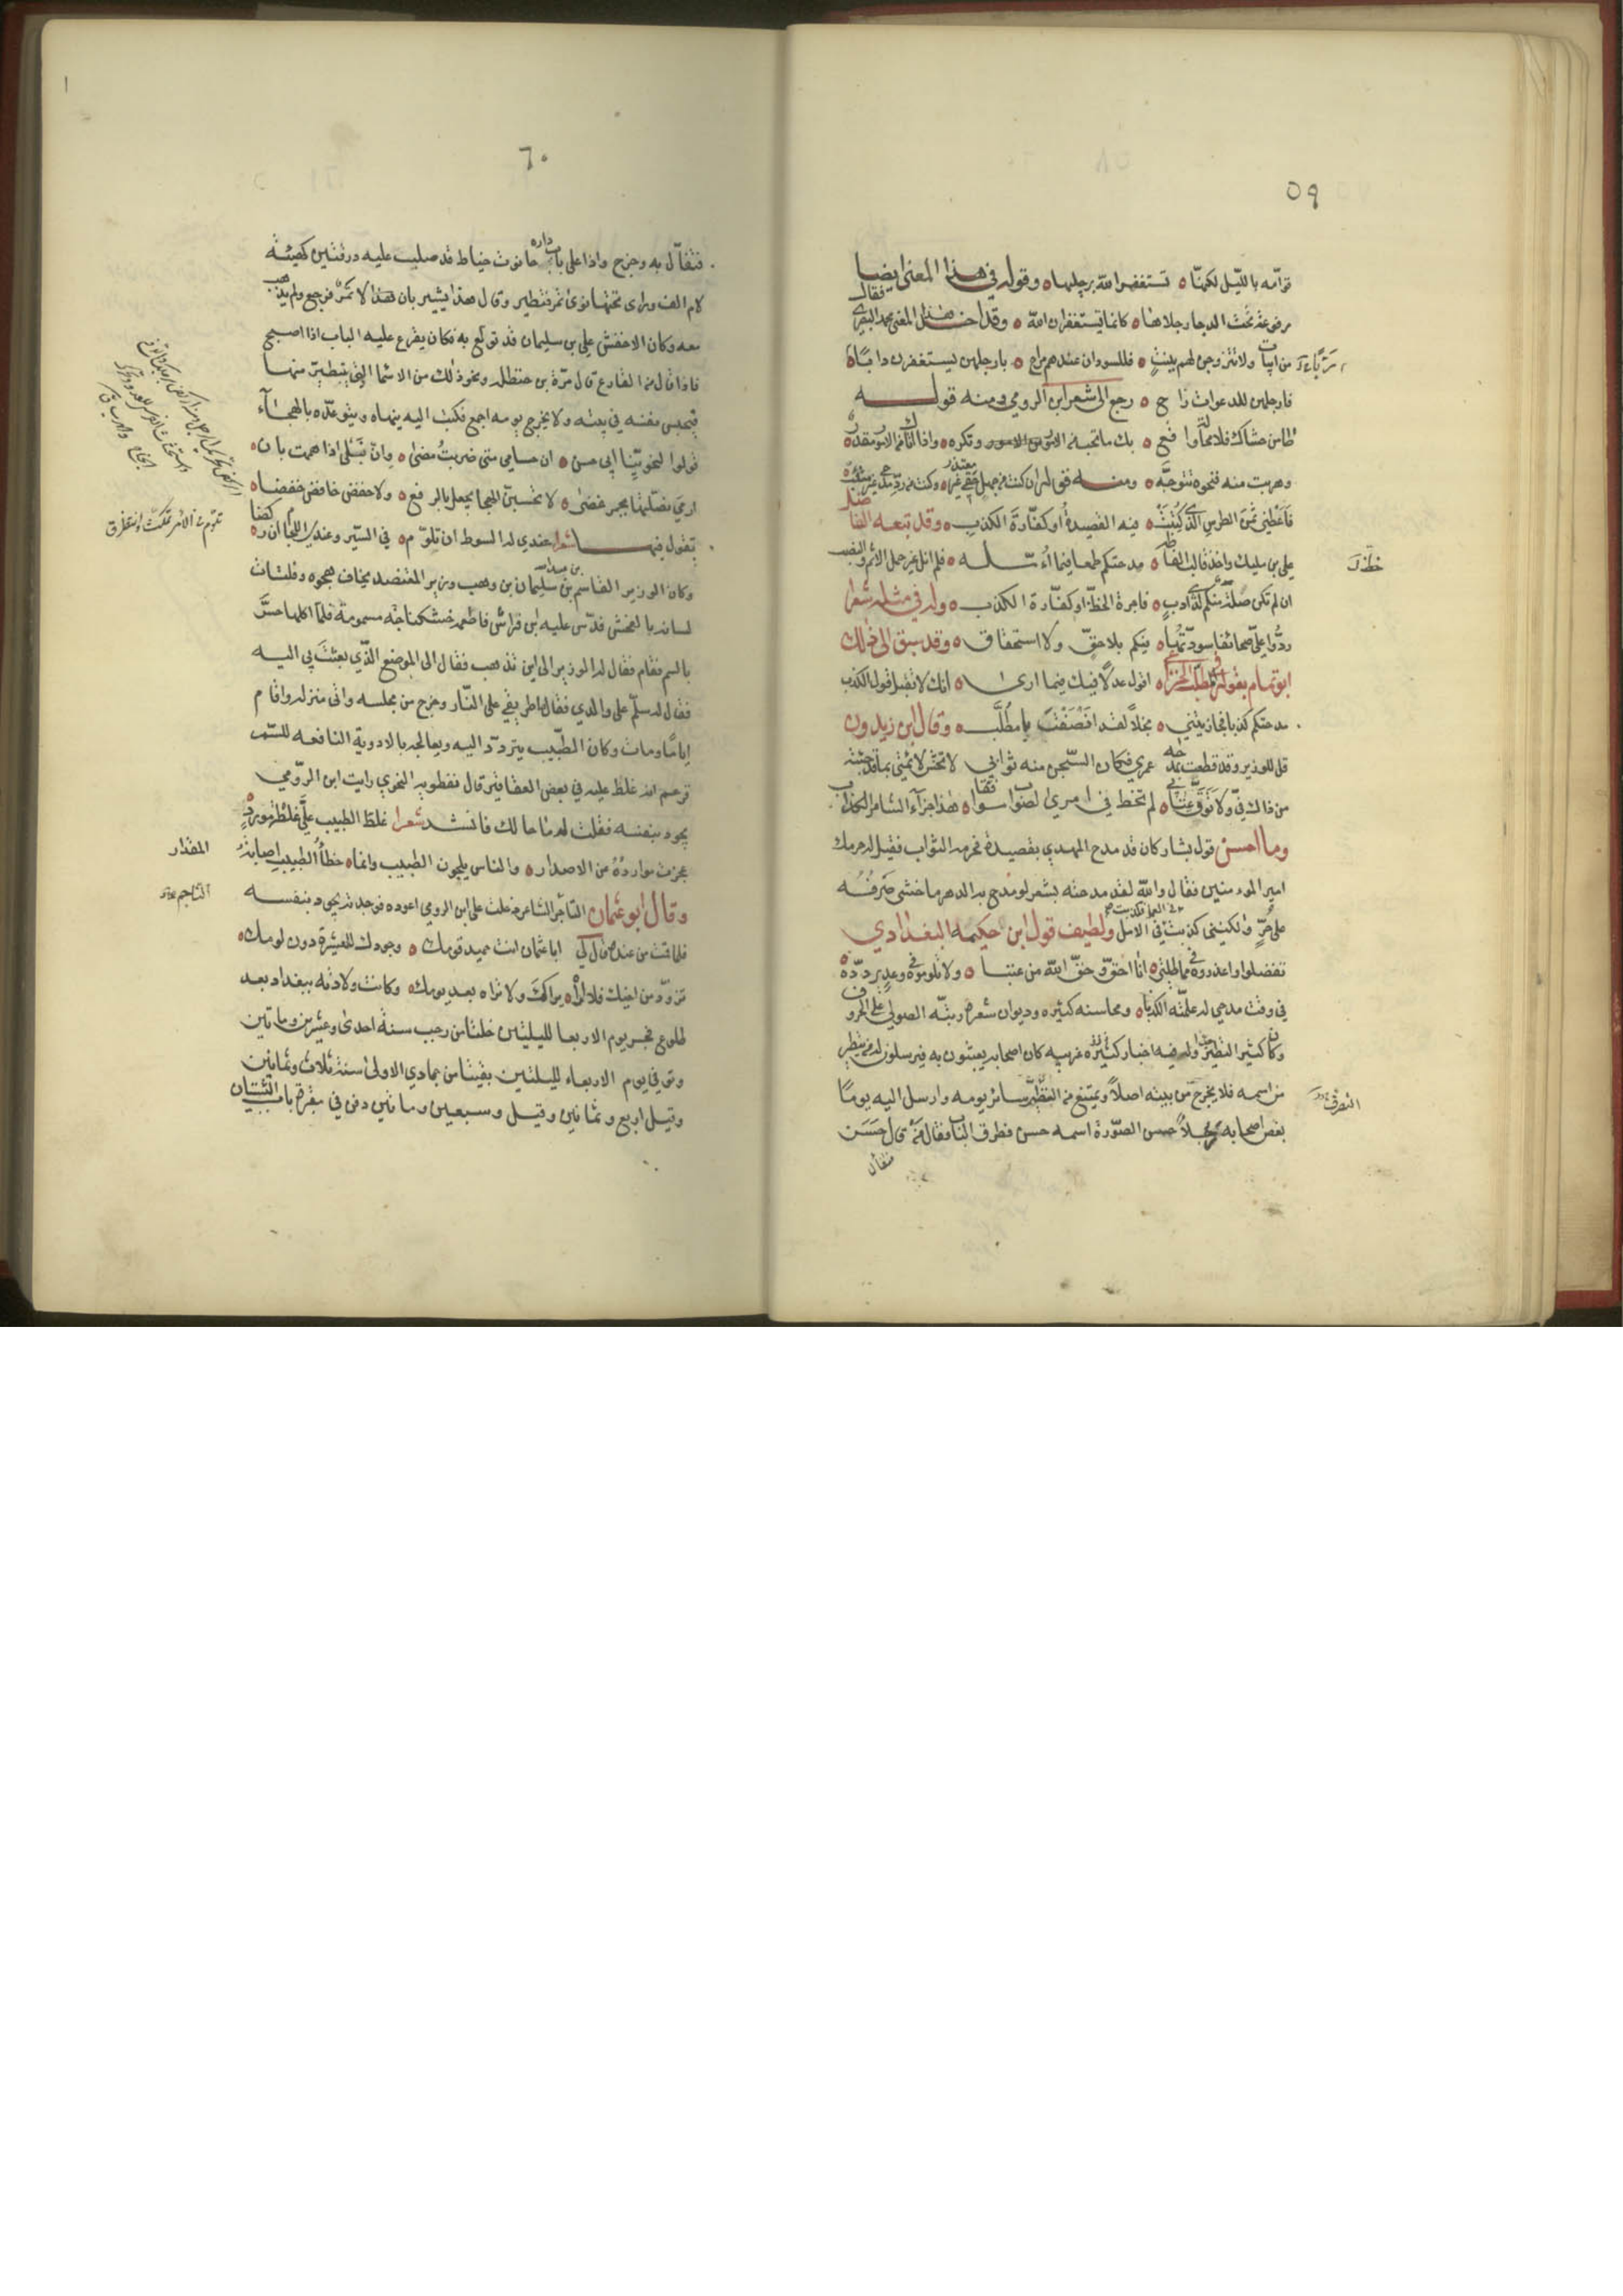 ٥٩
قوّامه بالليل لكنها ٥ تستغفر الله برجليها ٥ وقوله في هذا المعنى ايضا
مرفوعة تحت الدجا رجلاها ٥ كانما يستغفران الله ٥ وقد اخذ هذا المعنى محمد البصري فقال
من ابيات ولا تتزوجن لهم ببنت ٥ فللسودان عندهم مراح ٥ بارجلهن يستغفرن دابًا
فارجلهن للدعوات راح ٥ رجع الى شعر ابن الرومي ومنه قوله
طامن حشاك فلا محالة واقع ٥ بك ما تحبه من الامور وتكره ٥ واذا اتاك من الامور مقدر ٥
وهربت منه فنحوه تتوجّه ٥ ومنه قوله ان كنت من جهل حقي غير معتذر ٥ وكنت من ردّ مدحي غير متّئب ٥
فاعطني ثمن الطرس الذي كتبت ٥ فيه القصيدة او كفّارة الكذب ٥ وقد تبعه الفاضل
علي بن مليك واخذ قالب لفظه ٥ مدحتكم طمعا فيما اؤمّله ٥ فلم انل غير حمل الاثم والنصب
ان لم تكن صلة منكم لذي ادب ٥ فاجرة الخطّ او كفّارة الكذب ٥ وله في مثله شعرا
ردّوا عليّ صحائفا سوّدتها ٥ فيكم بلا حقّ ولا استحقاق ٥ وقد سبق الى ذلك
ابو تمام بقوله في مطّلب الخزاعي ٥ اقول عدلًا فيك فيما ارى ٥ انك لا تقبل قول الكذب
مدحتكم كذبا فجازيتني ٥ بخلاً لقد انصفت يا مطّلب ٥ وقال ابن زيدون
قل للوزير وقد قطعت بمدحه عمري فكان السّجن منه ثوابي لا تخش لائمتي بما قد جئته
من ذاك فيّ ولا توقّ عتابي ٥ لم تخط في امري الصواب موفقا ٥ هذا جزآء الشاعر الكذاب
وما احسن قول بشار كان قد مدح المهدي بقصيدة فحرمه الثواب فقيل له حرمك
امير المومنين فقال والله لقد مدحته بشعر لو مدح به الدهر ما خشي صرفه
على حرّ ولكنني كذبت في الامل ولطيف قول ابن حكيمه البغدادي
تفضلوا واعذروه في مماطلتي ٥ انا احقّ وحقّ الله من عتبا ٥ ولا تلوموه في وعد يردده ٥
في وقت مدحي له علّمته الكذبا ٥ ومحاسنه كثيره وديوان شعره رتبّه الصولي على الحروف
وكان كثير التطيّر جدا وله فيه اخبار كثيره غريبه كان اصحابه يعبثون به فيرسلون له من يتطير
من اسمه فلا يخرج من بيته اصلًا ويمتنع من التصرف سائر يومه وارسل اليه يومًا
بعض اصحابه رجلًا حسن الصّورة اسمه حسن فطرق الباب فقال من قال حسن
فتفأل
٦٠
فتفأّل به وخرج واذا على باب داره حانوت خياط قد صلب عليه درفتين كهيئة
لام الف وراى تحتها نوى تمر فتطير وقال هذا يشير بان هذا لا تمرّ فرجع ولم يذهب
معه وكان الاخفش علي بن سليمان قد تولّع به فكان يقرع عليه الباب اذا اصبح
فاذا قال من القارع قال مرّة بن حنظله ونحو ذلك من الاسما التي يتطيرّ منها
فيحبس نفسه في بيته ولا يخرج يومه اجمع فكتب اليه ينهاه ويتوعّده بالهجآء
قولوا لنحويّنا ابي حسن ٥ ان حسامي متى ضربت مضى ٥ وانّ نبلي اذا هممت بان ٥
ارمي نصلتها بجمر غضى ٥ لا تحسبنّ الهجا يحفل بالرفع ٥ ولا خفض خافض خفضا ٥
يقول فيها شعرا عندي له السوط ان تلوّم ٥ في السّير وعندي اللجام ان ركضا
وكان الوزير القاسم بن عبيد الله بن سليمان بن وهب وزير المعتضد يخاف هجوه وفلتات
لسانه بالفحش فدسّ عليه ابن فراش فاطعمه خشكنانجه مسمومة فلمّا اكلها حسّ
بالسم فقام فقال له الوزير الى اين تذهب فقال الى الموضع الذّي بعثت بي اليه
فقال له سلّم على والدي فقال ما طريقي على النّار وخرج من مجلسه واتى منزله واقام
ايامًا ومات وكان الطّبيب يتردّد اليه ويعالجه بالادوية النافعه للسّم
فزعم انه غلط عليه في بعض العقاقير قال نفطويه النحوي رايت ابن الرّومي
يجود بنفسه فقلت له ما حالك فانشد شعرا غلط الطبيب عليّ غلطة مورد
عجزت موارده عن الاصدار ٥ والناس يلحون الطبيب وانما ٥ خطأ الطبيب اصابة المقدار
وقال ابو عثمان الناجم الشاعر دخلت على ابن الرومي اعوده فوجدته يجود بنفسه
فلما قمت من عنده قال لي ابا عثمان انت حميد قومك ٥ وجودك للعشيرة دون لومك ٥
تزوّد من اخيك فلا اراه يراك ولا تراه بعد يومك ٥ وكانت ولادته ببغداد بعد
طلوع فجر يوم الاربعا لليلتين خلتا من رجب سنة احدى وعشرين وماتين
وتوفي يوم الاربعاء لليلتين بقيتا من جمادي الاولى سنة ثلاث وثمانين
وقيل اربع وثمانين وقيل وسبعين وماتين ودفن في مقبرة باب البستان